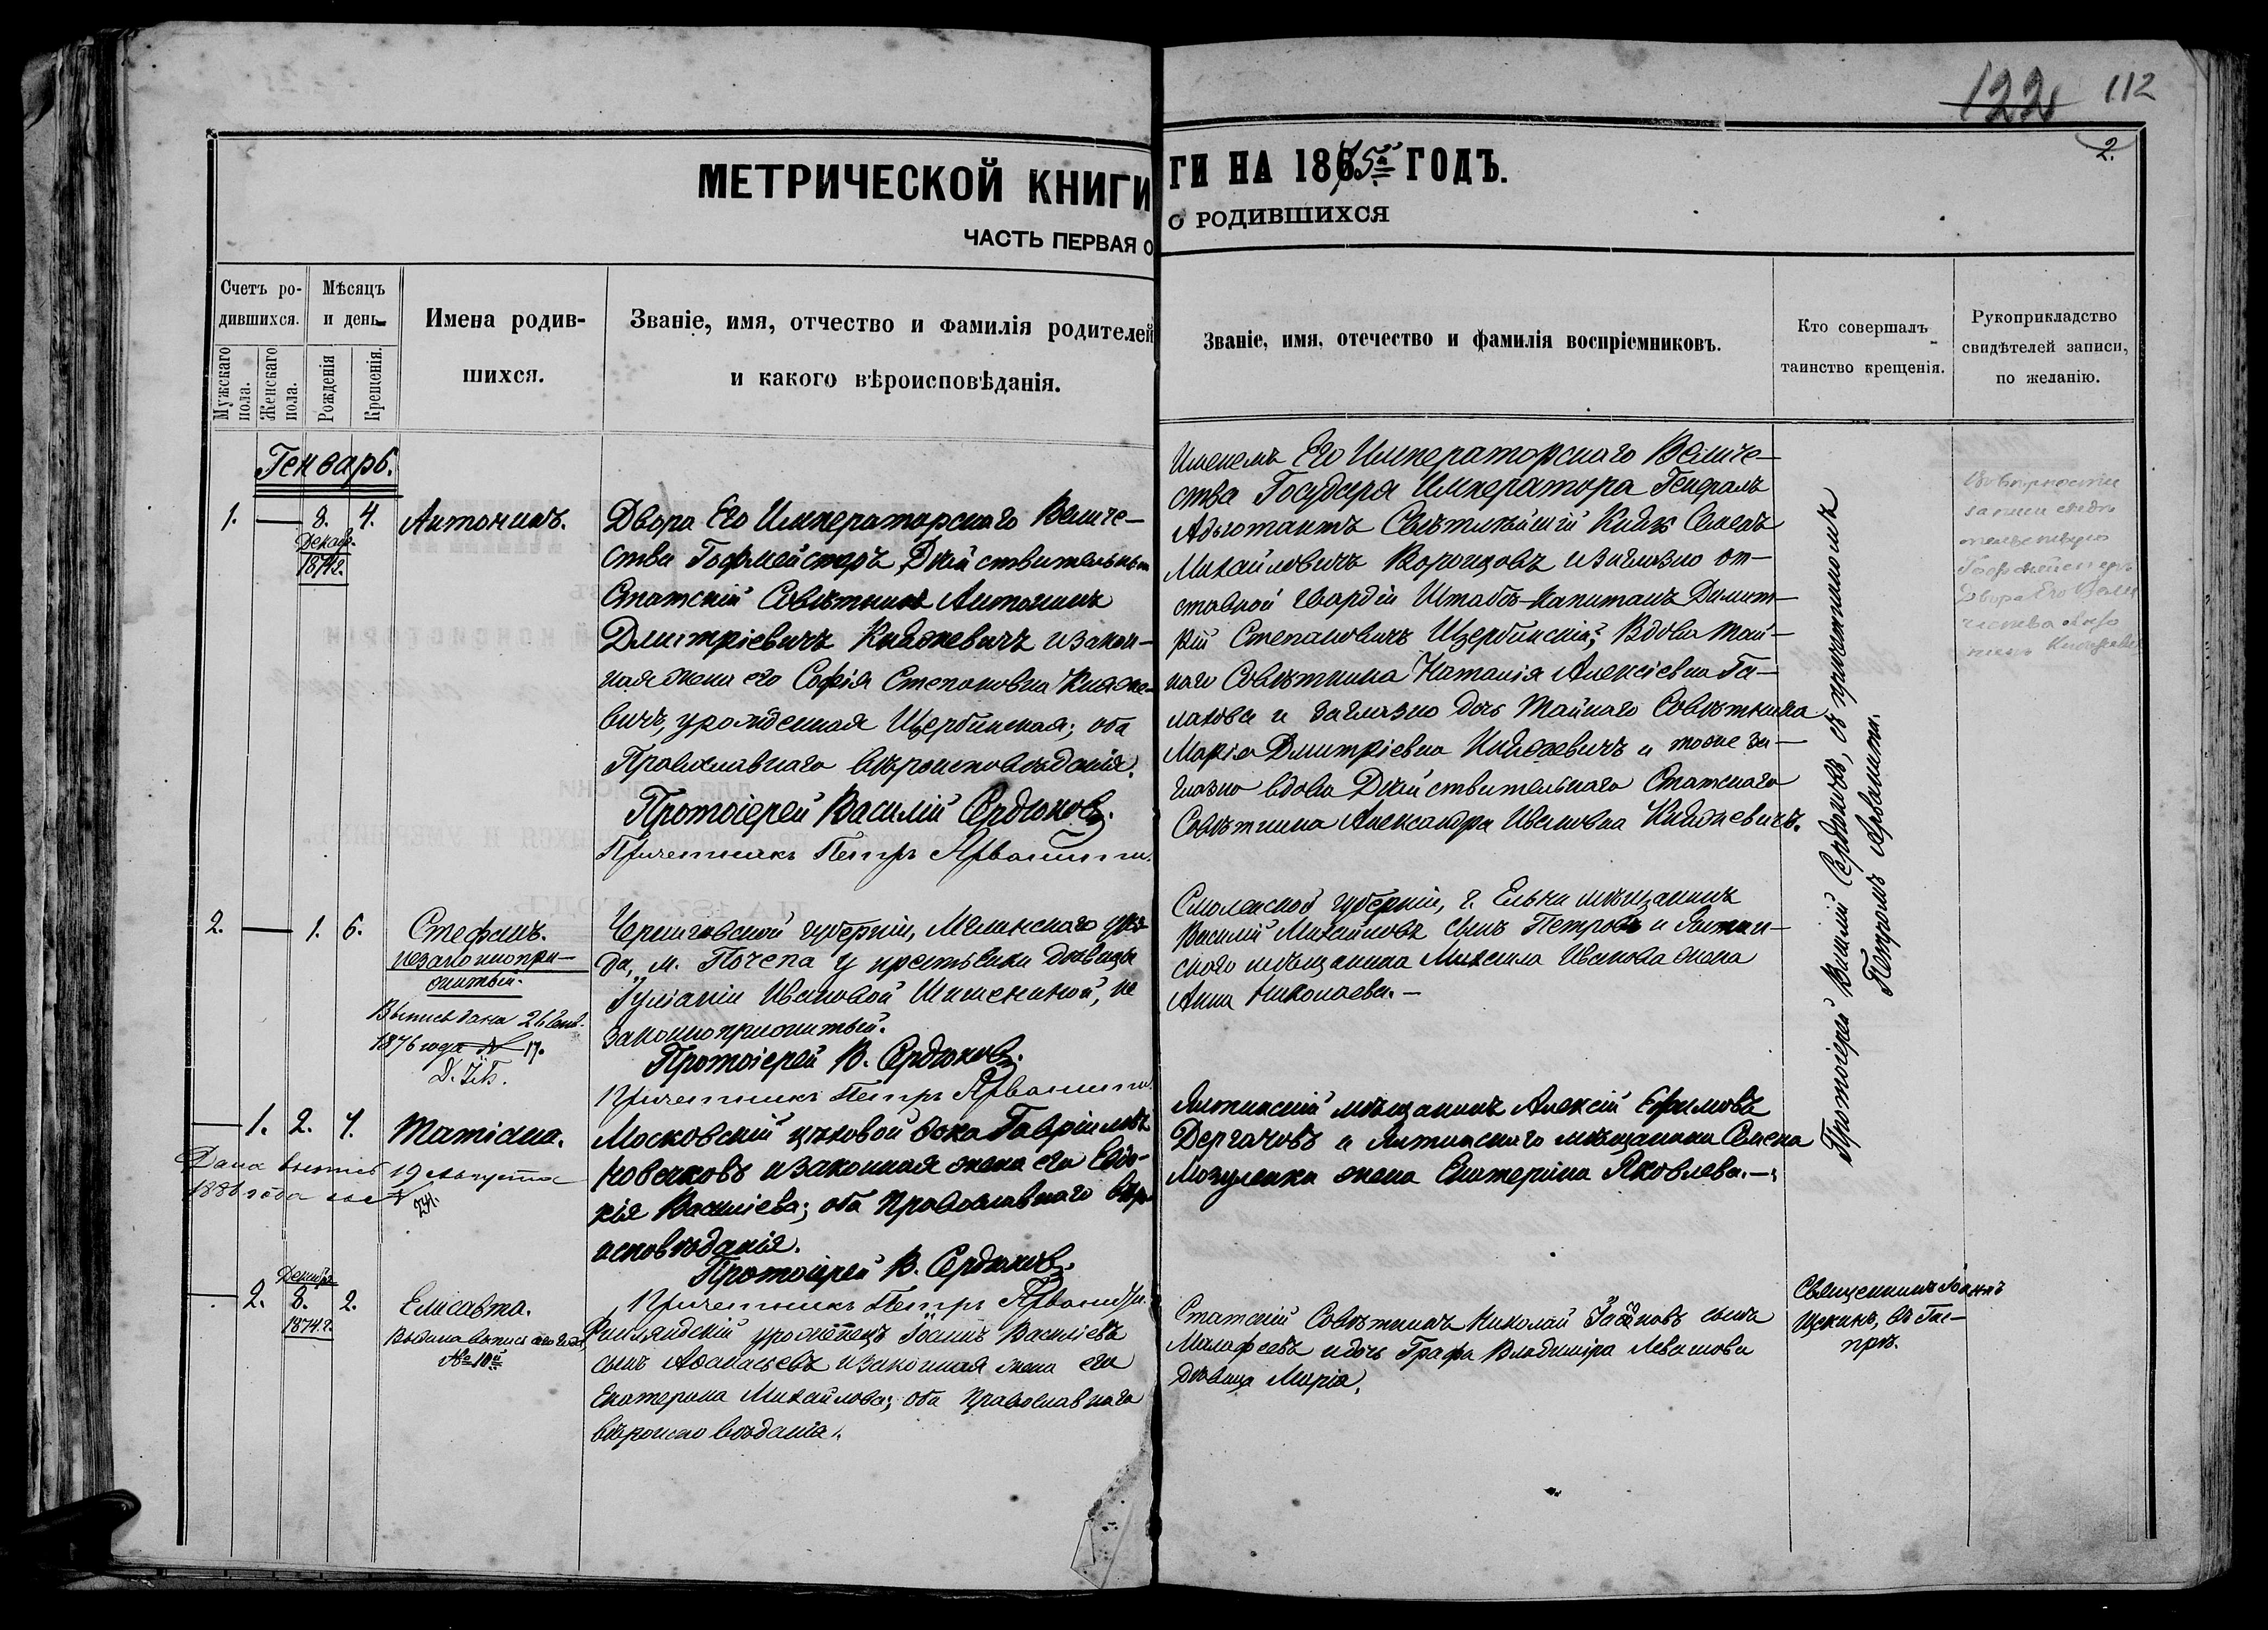 122 112
2.
МЕТРИЧЕСКОЙ КНИГИ
ГИ НА 1875й ГОДЪ.
ЧАСТЬ ПЕРВАЯ О
О РОДИВШИХСЯ
Счетъ ро-
дившихся.
Мужскаго пола.
Женскаго пола.
Мѣсяцъ
и день
Рожденія
Крещенія.
Имена родив-
шихся.
Званіе, имя, отчество и фамилія родителей
и какого вѣроисповѣданія.
Званіе, имя, отечество и фамилія воспріемниковъ.
Кто совершалъ
таинство крещенія.
Рукоприкладство
свидѣтелей записи,
по желанію.
Генварь.
1. — 8. 4.
Декабр.
1874 г.
Антонинъ.
Двора Его Императорскаго Величе-
ства Гофмейстеръ, Дѣйствительный
Статскій Совѣтникъ Антонинъ
Дмитріевичъ Княжевичъ и закон-
ная жена его Софія Степановна Княже-
вичъ, урожденная Щербинская; оба
Православнаго вѣроисповѣданія.
Протоіерей Василій Сердюковъ.
Причетникъ Петръ Арванити.
Именемъ Его Императорскаго Величе-
ства Государя Императора Генералъ
Адъютантъ Свѣтлѣйшій Князь Семенъ
Михайловичъ Воронцовъ и заглазно от-
ставной Гвардіи Штабсъ-Капитанъ Димит-
рій Степановичъ Щербинскій; Вдова Тай-
наго Совѣтника Наталія Алексіевна Га-
лахова и заглазно дочь Тайнаго Совѣтника
Марія Дмитріевна Княжевичъ и тоже за-
глазно вдова Дѣйствительнаго Статскаго
Совѣтника Александра Ивановна Княжевичъ.
Протоіерей Василій Сердюковъ, съ причетникомъ
Петромъ Арванити.
записи
Гофмейстеръ
Двора Его Вели
чества
2. — 1. 6.
Стефанъ.
незаконнопри-
житый.
Выпись дана
1876 года № 17.
Черниговской губерніи, Мглинскаго уѣз-
да, м. Почепа у крестьянки дѣвицы
Іуліаніи Ивановой, не
законноприжитый.
Протоіерей В. Сердюковъ.
Причетникъ Петръ Арванити.
Смоленской губерніи, г. Ельни мѣщанинъ
Василій Михайловъ сынъ Петровъ и Ялтин-
скаго мѣщанина Михаила Иванова жена
Анна Николаева.—
— 1. 2. 7.
Татіана.
Дана выпись 19 Августа
1881 года за №
234.
Московскій цѣховой Гавріилъ
Новечковъ и законная жена его Евдо-
кія Василіева; оба Православнаго вѣро-
исповѣданія.
Протоіерей В. Сердюковъ.
Причетникъ Петръ Арванити.
Ялтинскій мѣщанинъ Алексій Ефимовъ
Дергачовъ и Ялтинскаго мѣщанина Семена
Могуленка жена Екатерина Яковлева.—
— 2. 8. 2.
Декабр.
1874 г.
Елисавета.
Выдана выпись
№ 10й
Финляндскій уроженецъ Іоаннъ Василіевъ
сынъ Аѳанасьевъ и законная жена его
Екатерина Михайлова; оба Православнаго
вѣроисповѣданія.
Статскій Совѣтникъ Николай сынъ
Малафеевъ и дочь Графа Владиміра Левашова
дѣвица Марія.
Священникъ Іоаннъ
Щекинъ, въ Гас-
прѣ.